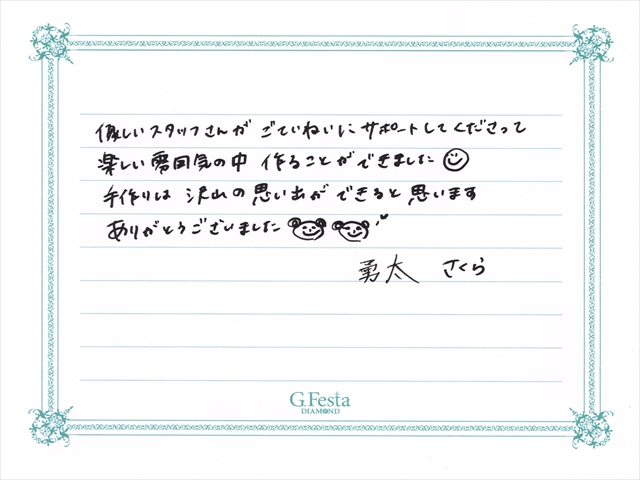 優しいスタッフさんが ごていねいに サポートしてくださって
楽しい雰囲気の中 作ることができました
手作りは 沢山の思い出が できると思います
ありがとうございました
勇太 さくら
G.Festa
DIAMOND